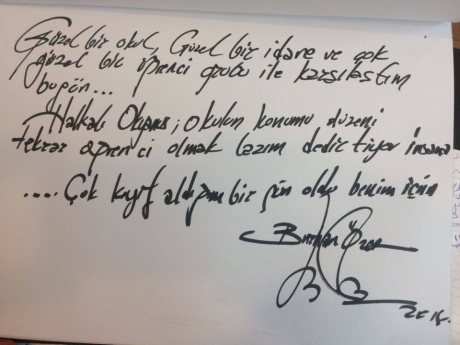 Güzel bir okul, Güzel bir idare ve çok
güzel bir öğrenci grubu ile karşılaştım
bugün...
Halkalı Okyanus; okulun konumu düzeni
tekrar öğrenci olmak lazım dedirtiyor insana
..... Çok keyif aldığım bir gün oldu benim için